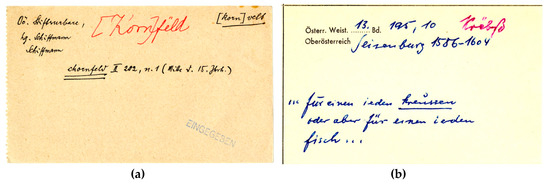 Oö. Stiftsurbare,
hg. Schiffmann
Schiffmann
[Korn]feld
[korn]velt
chornfeld II 282, n. 1 (Mitte d. 15. Jhrh.)
EINGEGEBEN
(a)
Österr. Weist. 13. Bd. 195, 10
Oberösterreich Seisenburg 1586-1604
Krebß
... für einen ieden kreussen
oder aber für einen ieden
fisch ...
(b)